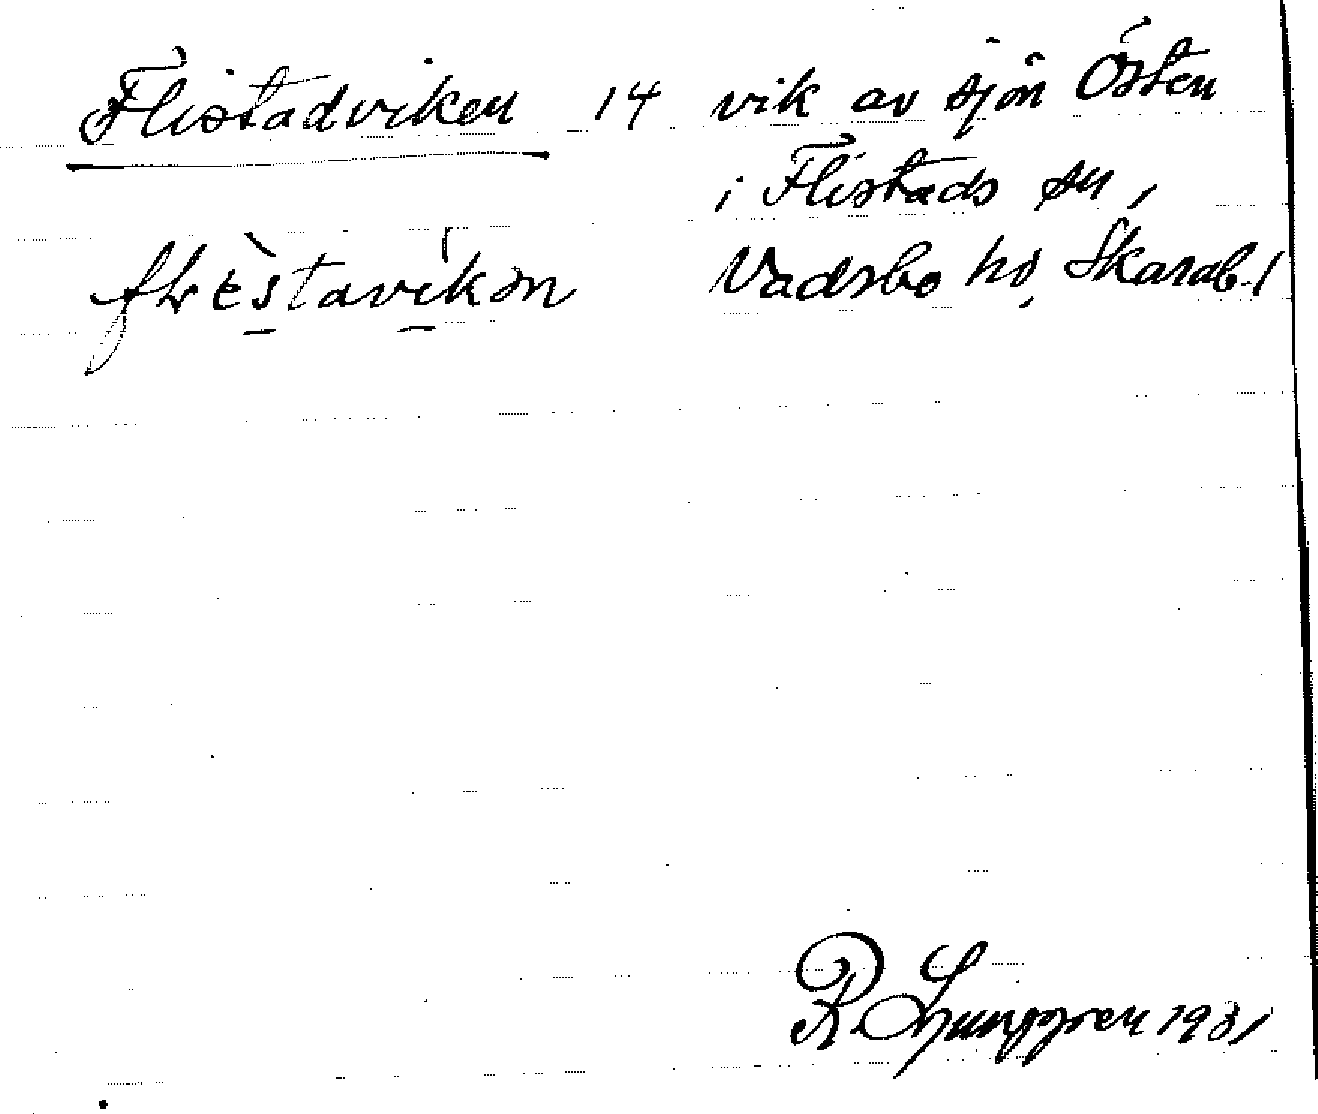 Flistadviken 14 vik av sjön Östen
i Flistads sn,
Vadsbo hd, Skarab. l
R. Ljunggren 1931